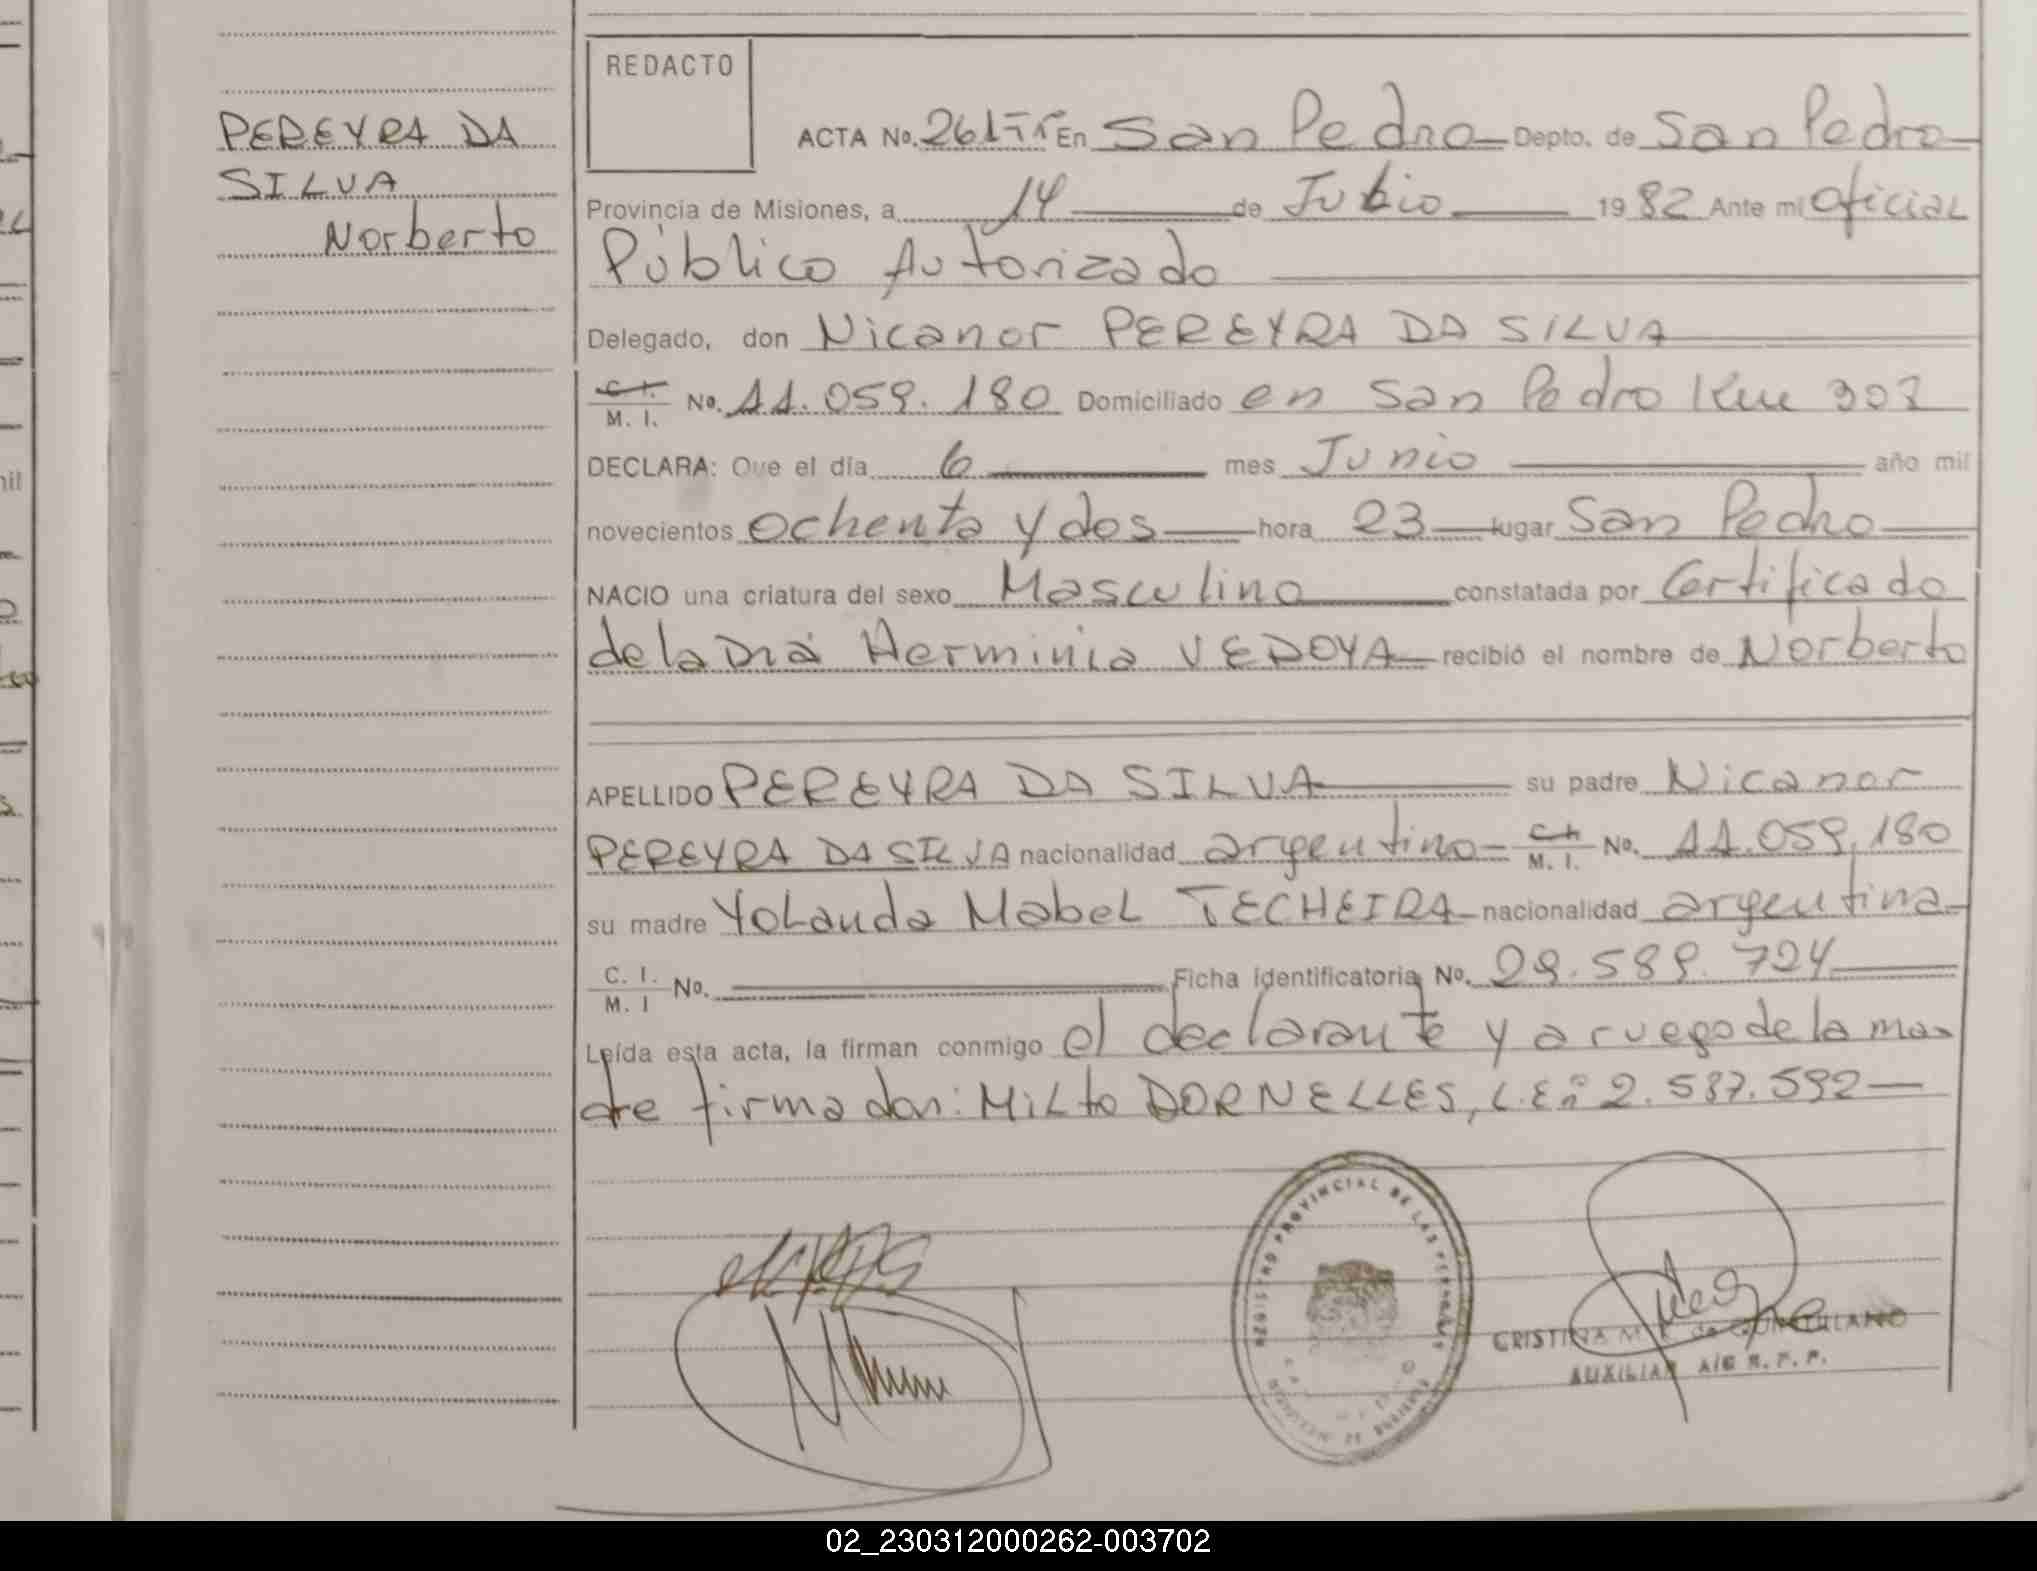 PEREYRA DA
SILVA
Norberto
REDACTO
ACTA No. 261 En San Pedro Depto. de San Pedro
Provincia de Misiones, a 14 de Julio 1982 Ante mi Oficial
Público Autorizado
Delegado, don Nicanor PEREYRA DA SILVA
C. I. M. I. No. 11.059.180 Domiciliado en San Pedro Km
DECLARA: Que el día 6 mes Junio año mil
novecientos ochenta y dos hora 23 lugar San Pedro
NACIO una criatura del sexo Masculino constatada por Certificado
de la Dra Herminia VEDOYA recibió el nombre de Norberto
APELLIDO PEREYRA DA SILVA su padre Nicanor
PEREYRA DA SILVA nacionalidad argentino C. I. M. I. No. 11.059.180
su madre Yolanda Mabel TECHEIRA nacionalidad argentina
C. I. M. I No. Ficha identificatoria No. 29.589.724
Leída esta acta, la firman conmigo el declarante y a ruego de la ma
dre firma don: Milto DORNELLES, L.E. 2.587.592
REGISTRO PROVINCIAL DE LAS PERSONAS
CRISTINA M.
AUXILIAR A/C R. P. P.
02_230312000262-003702